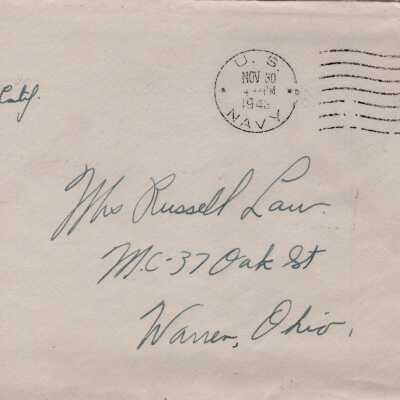 U. S.
NOV 30
PM
NAVY
Calif.
Mrs Russell Law.
M.C-37 Oak St
Warren, Ohio.